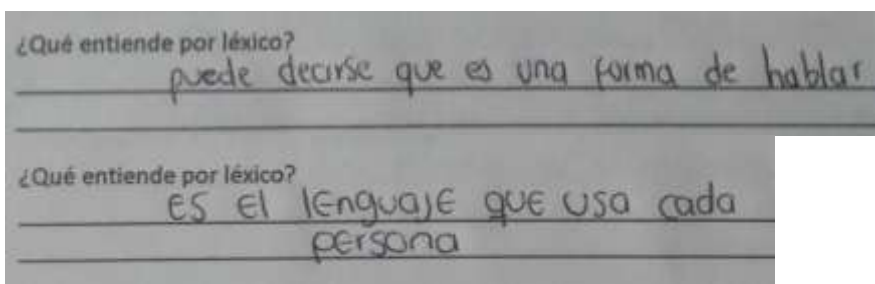 ¿Qué entiende por léxico?
puede decirse que es una forma de hablar
¿Qué entiende por léxico?
ES El lenguaje que usa cada
persona